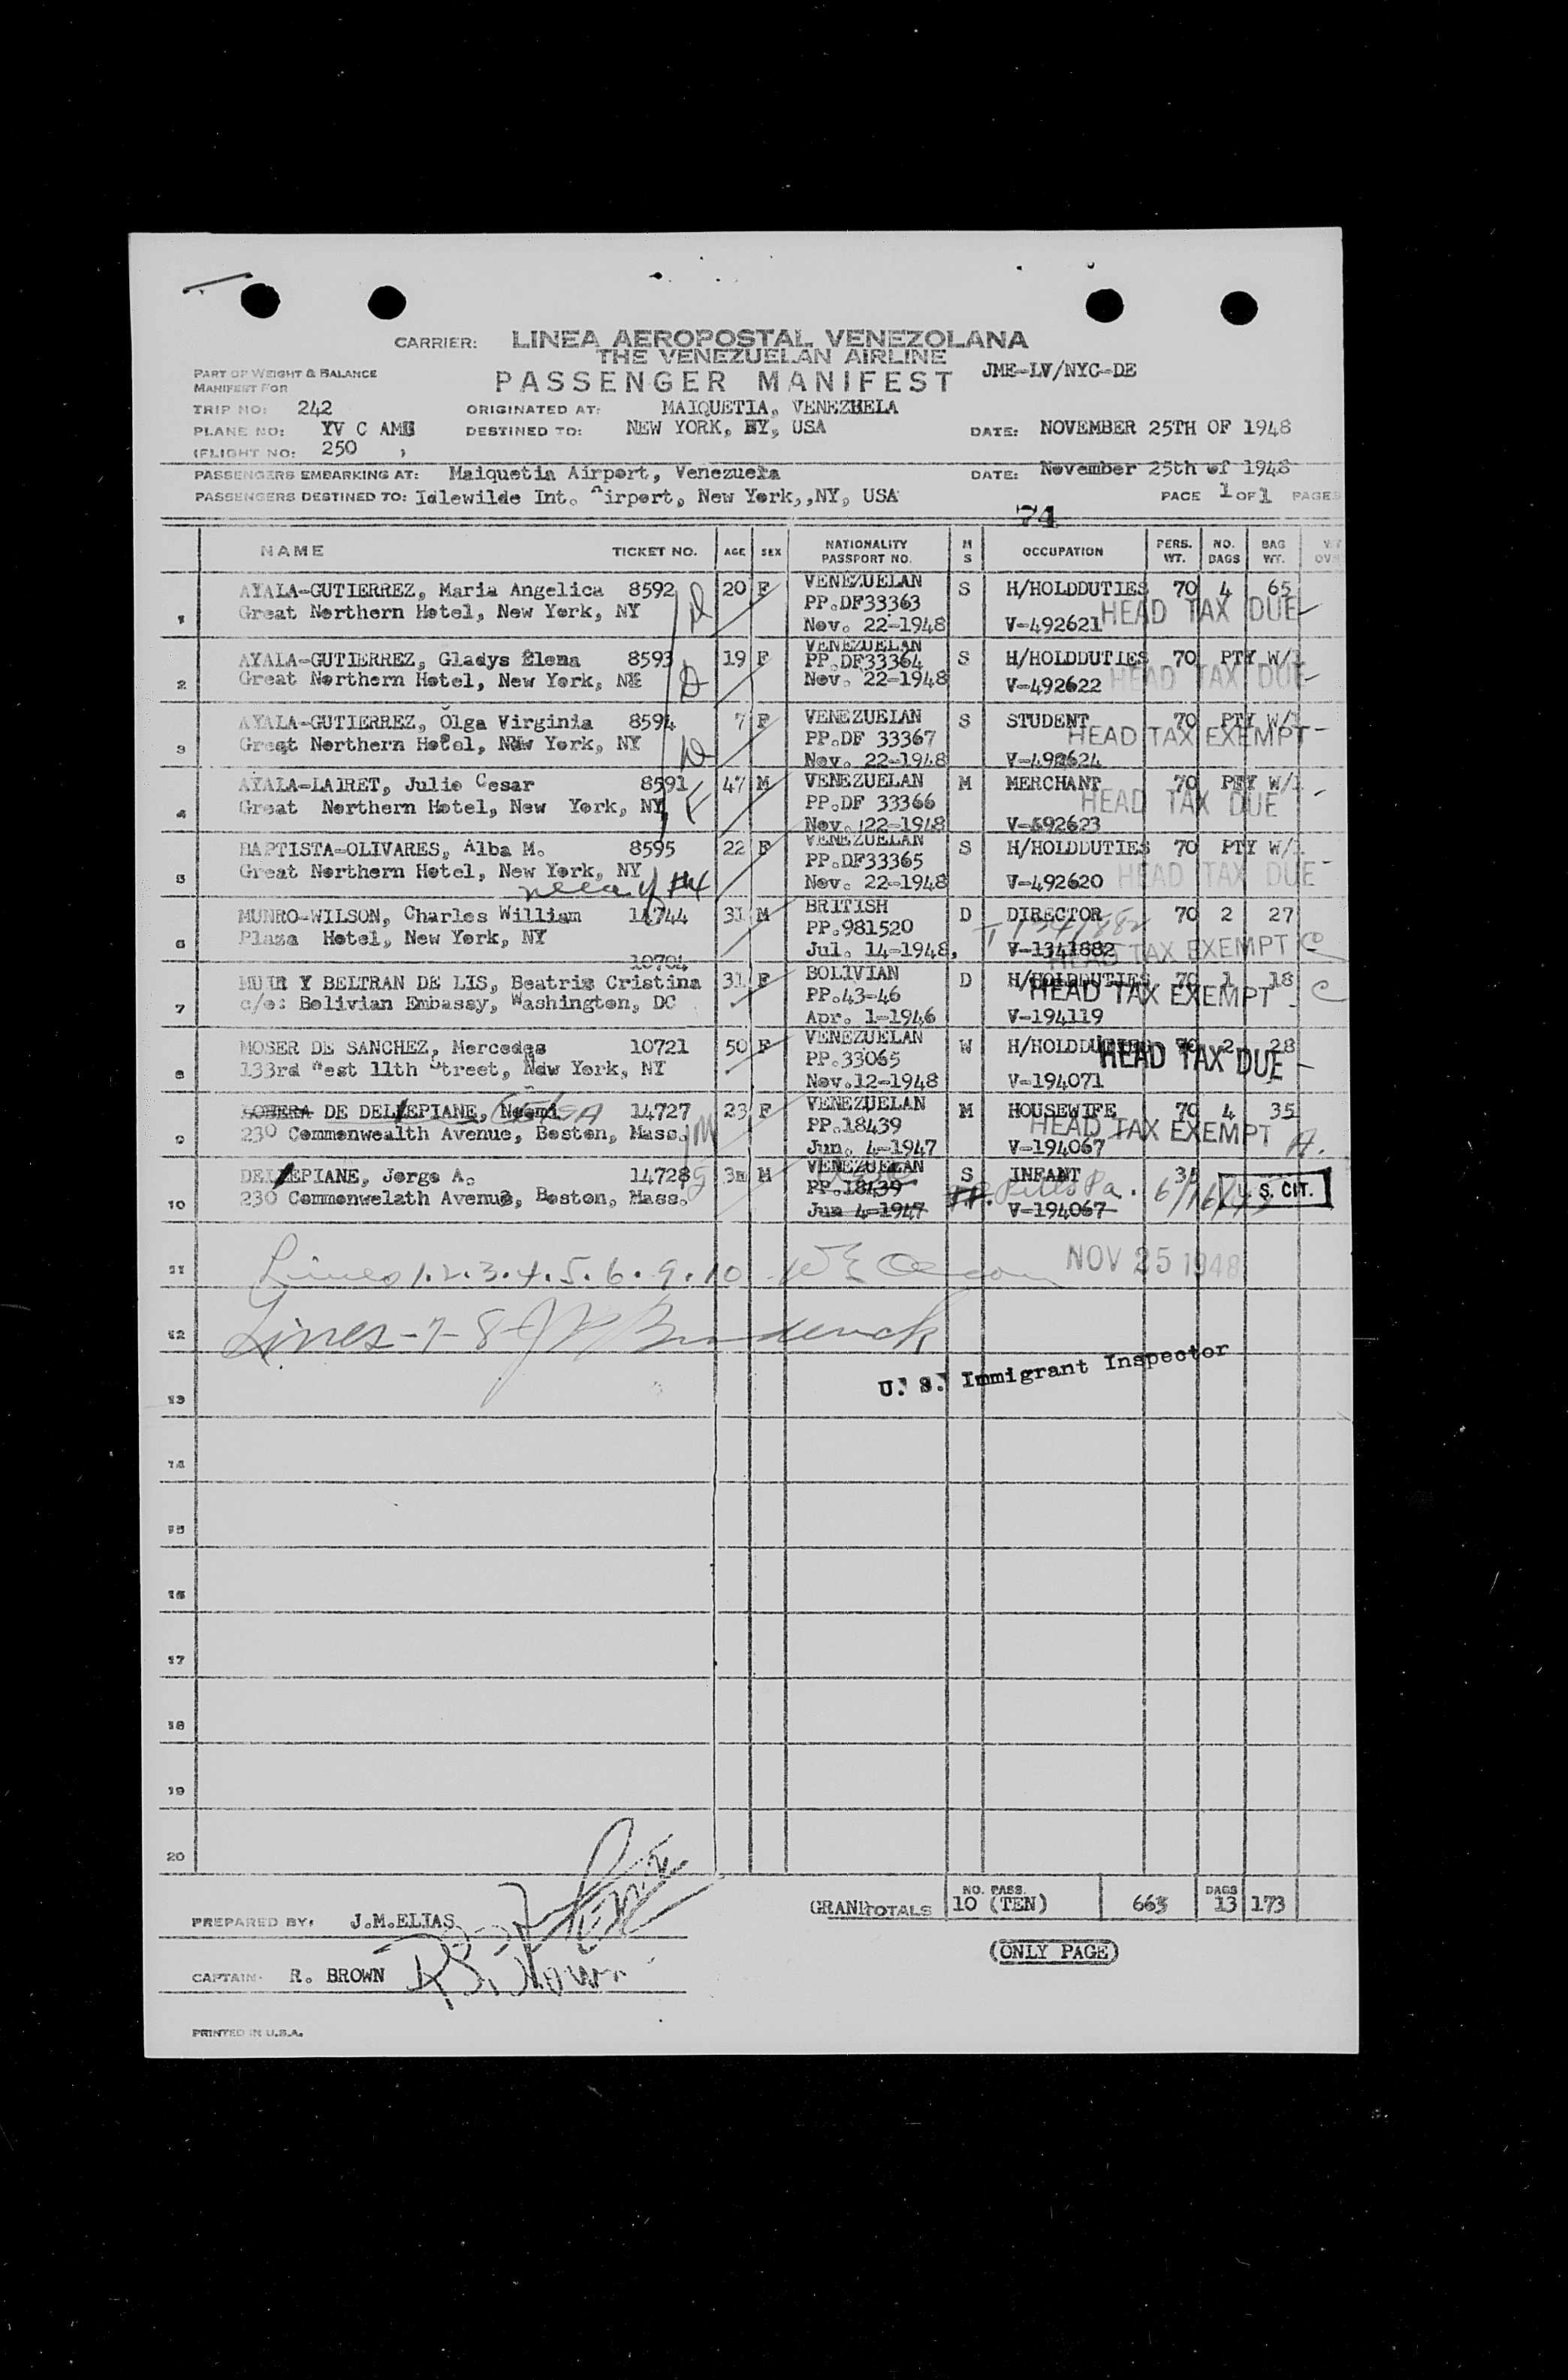 CARRIER: LINEA AEROPOSTAL VENEZOLANA
THE VENEZUELAN AIRLINE
PART OF WEIGHT & BALANCE
MANIFEST FOR
PASSENGER MANIFEST JME-LV/NYC-DE
TRIP NO: 242 ORIGINATED AT: MAIQUETIA, VENEZUELA
PLANE NO: YV C AME DESTINED TO: NEW YORK, NY, USA DATE: NOVEMBER 25TH OF 1948
(FLIGHT NO: 250 )
PASSENGERS EMBARKING AT: Maiquetia Airport, Venezuela DATE: November 25th of 1948
PASSENGERS DESTINED TO: Idlewilde Int. Airport, New York,,NY, USA PAGE 1 OF 1 PAGES
74
NAME TICKET NO. AGE SEX NATIONALITY PASSPORT NO. M S OCCUPATION PERS. WT. NO. BAGS BAG WT.
1 AYALA-GUTIERREZ, Maria Angelica 8592 D 20 F VENEZUELAN S H/HOLDDUTIES 70 4 65
Great Northern Hotel, New York, NY PP.DF33363 HEAD TAX DUE
Nov. 22-1948 V-492621
2 AYALA-GUTIERREZ, Gladys Elena 8593 D 19 F VENEZUELAN PP.DF33364 S H/HOLDDUTIES 70 PTY W/1
Great Northern Hotel, New York, NY Nov. 22-1948 V-492622 HEAD TAX DUE
3 AYALA-GUTIERREZ, Olga Virginia 8594 D 7 F VENEZUELAN S STUDENT 70 PTY W/1
Great Northern Hotel, New York, NY PP.DF 33367 HEAD TAX EXEMPT
Nov. 22-1948 V-492624
4 AYALA-LAIRET, Julio Cesar 8591 F 47 M VENEZUELAN M MERCHANT 70 PTY W/1
Great Northern Hotel, New York, NY PP.DF 33366 HEAD TAX DUE
Nov. 22-1948 V-492623
5 BAPTISTA-OLIVARES, Alba M. 8595 22 F VENEZUELAN S H/HOLDDUTIES 70 PTY W/1
Great Northern Hotel, New York, NY PP.DF33365
Nov. 22-1948 V-492620 HEAD TAX DUE
6 MUNRO-WILSON, Charles William 14744 31 M BRITISH D DIRECTOR 70 2 27
Plaza Hotel, New York, NY PP.981520 T 1341882
Jul. 14-1948, V-1341882 HEAD TAX EXEMPT C
10704
7 MUIR Y BELTRAN DE LIS, Beatris Cristina 31 F BOLIVIAN D H/HOLDDUTIES 70 1 18
c/o: Bolivian Embassy, Washington, DC PP.43-46 HEAD TAX EXEMPT C
Apr. 1-1946 V-194119
8 MOSER DE SANCHEZ, Mercedes 10721 50 F VENEZUELAN W H/HOLDDUTIES 70 2 28
133rd West 11th Street, New York, NY PP.33065 HEAD TAX DUE
Nov.12-1948 V-194071
9 DE DELLEPIANE, Noemi 14727 M 23 F VENEZUELAN M HOUSEWIFE 70 4 35
230 Commonwealth Avenue, Boston, Mass. PP.18439 HEAD TAX EXEMPT A.
Jun. 4-1947 V-194067
10 DELLEPIANE, Jorge A. 14728 3m M VENEZUELAN S INFANT 35
230 Commonwelath Avenue, Boston, Mass. PP.18439 S. CIT.
Jun 4-1947 V-194067
11 Lines 1.2.3.4.5.6.9.10 NOV 25 1948
12 Lines-7-8-
U. S. Immigrant Inspector
13
14
15
16
17
18
19
20
GRAND TOTALS NO. PASS. 10 (TEN) 663 BAGS 13 173
PREPARED BY: J.M.ELIAS
(ONLY PAGE)
CAPTAIN: R. BROWN
PRINTED IN U.S.A.